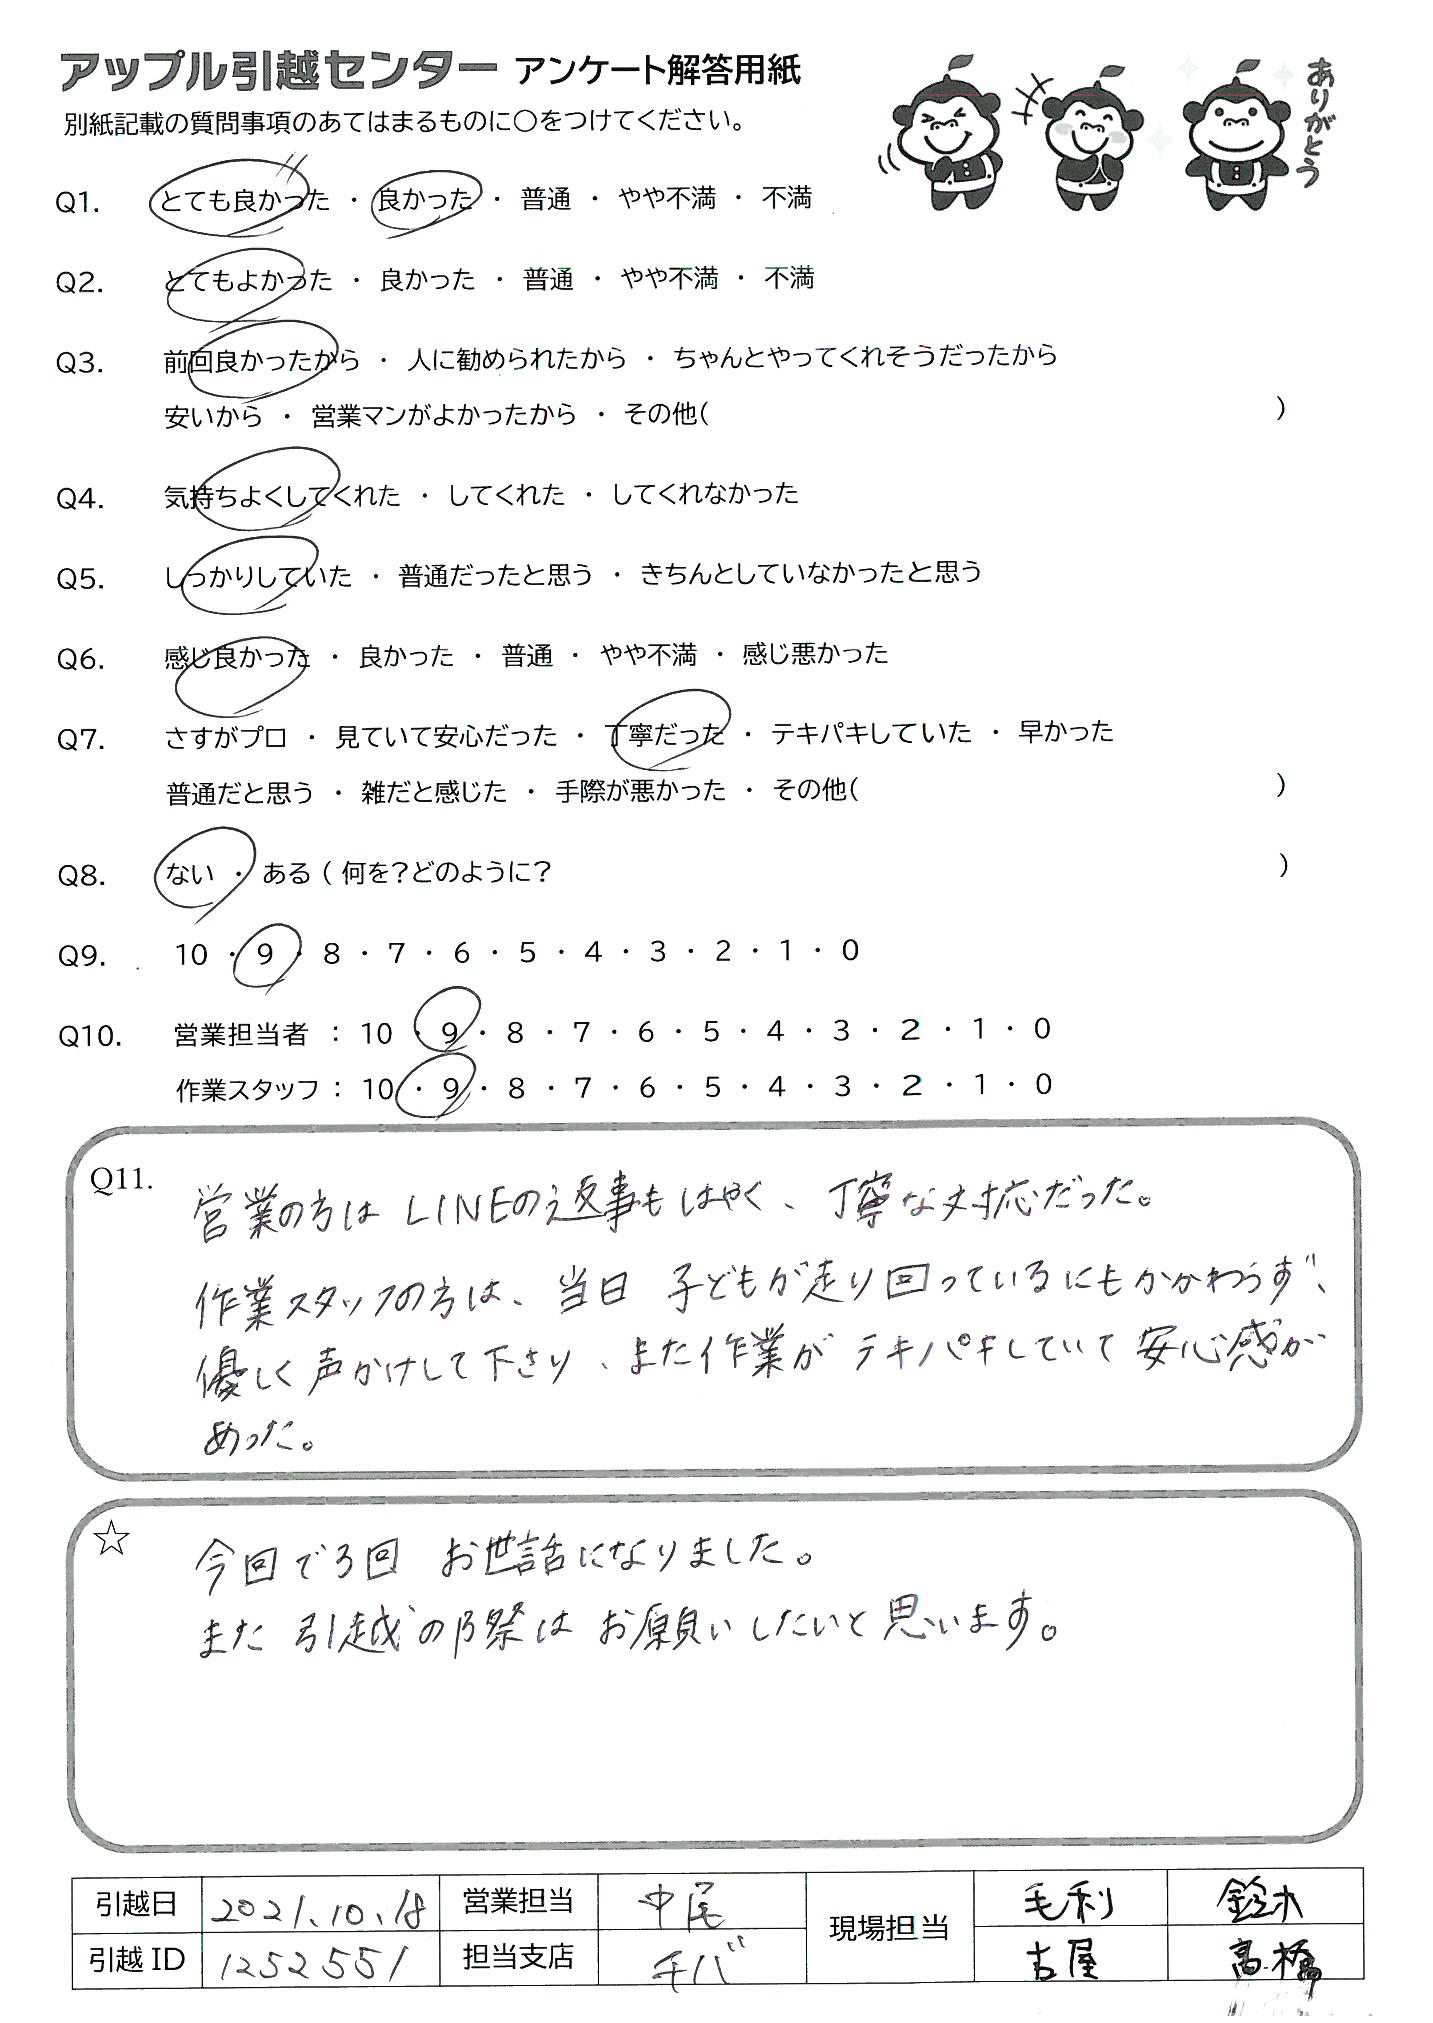 アップル引越センター アンケート解答用紙
ありがとう
別紙記載の質問事項のあてはまるものに○をつけてください。
Q1. とても良かった ・ 良かった ・ 普通 ・ やや不満 ・ 不満
Q2. とてもよかった ・ 良かった ・ 普通 ・ やや不満 ・ 不満
Q3. 前回良かったから ・ 人に勧められたから ・ ちゃんとやってくれそうだったから
安いから ・ 営業マンがよかったから ・ その他( )
Q4. 気持ちよくしてくれた ・ してくれた ・ してくれなかった
Q5. しっかりしていた ・ 普通だったと思う ・ きちんとしていなかったと思う
Q6. 感じ良かった ・ 良かった ・ 普通 ・ やや不満 ・ 感じ悪かった
Q7. さすがプロ ・ 見ていて安心だった ・ 丁寧だった ・ テキパキしていた ・ 早かった
普通だと思う ・ 雑だと感じた ・ 手際が悪かった ・ その他( )
Q8. ない ・ ある ( 何を?どのように? )
Q9. 10 ・ 9 ・ 8 ・ 7 ・ 6 ・ 5 ・ 4 ・ 3 ・ 2 ・ 1 ・ 0
Q10. 営業担当者 : 10 ・ 9 ・ 8 ・ 7 ・ 6 ・ 5 ・ 4 ・ 3 ・ 2 ・ 1 ・ 0
作業スタッフ : 10 ・ 9 ・ 8 ・ 7 ・ 6 ・ 5 ・ 4 ・ 3 ・ 2 ・ 1 ・ 0
Q11.
営業の方は LINEの返事もはやく、丁寧な対応だった。
作業スタッフの方は、当日 子どもが走り回っているにもかかわらず、
優しく声かけして下さり、また作業が テキパキしていて 安心感が
あった。
☆
今回で3回 お世話になりました。
また 引越の際は お願いしたいと思います。
引越日 2021.10.18 営業担当 中尾 現場担当 毛利 鈴木
引越 ID 1252551 担当支店 千バ 古屋 高橋